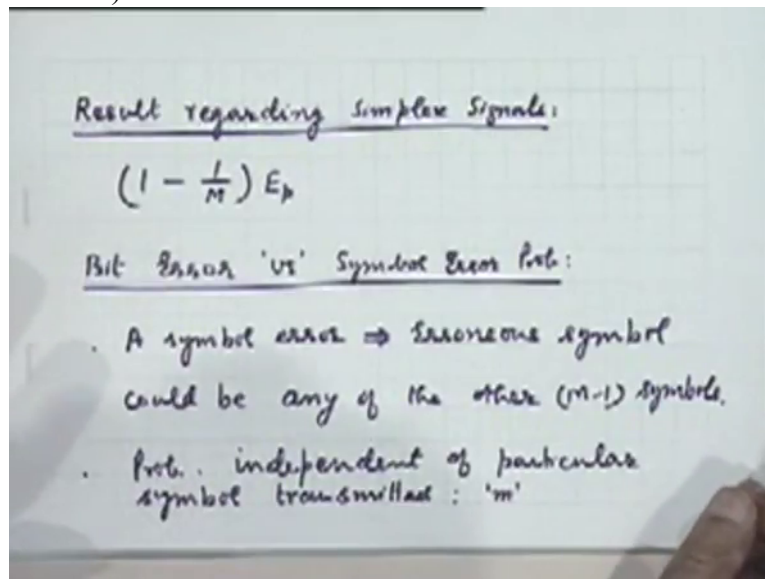 Result regarding Simplex Signals:
(1 - 1/M) Ep
Bit Error 'vs' Symbol Error Prob:
. A symbol error ⇒ Erroneous symbol
could be any of the other (M-1) symbols.
. Prob. independent of particular
symbol transmitted : 'm'